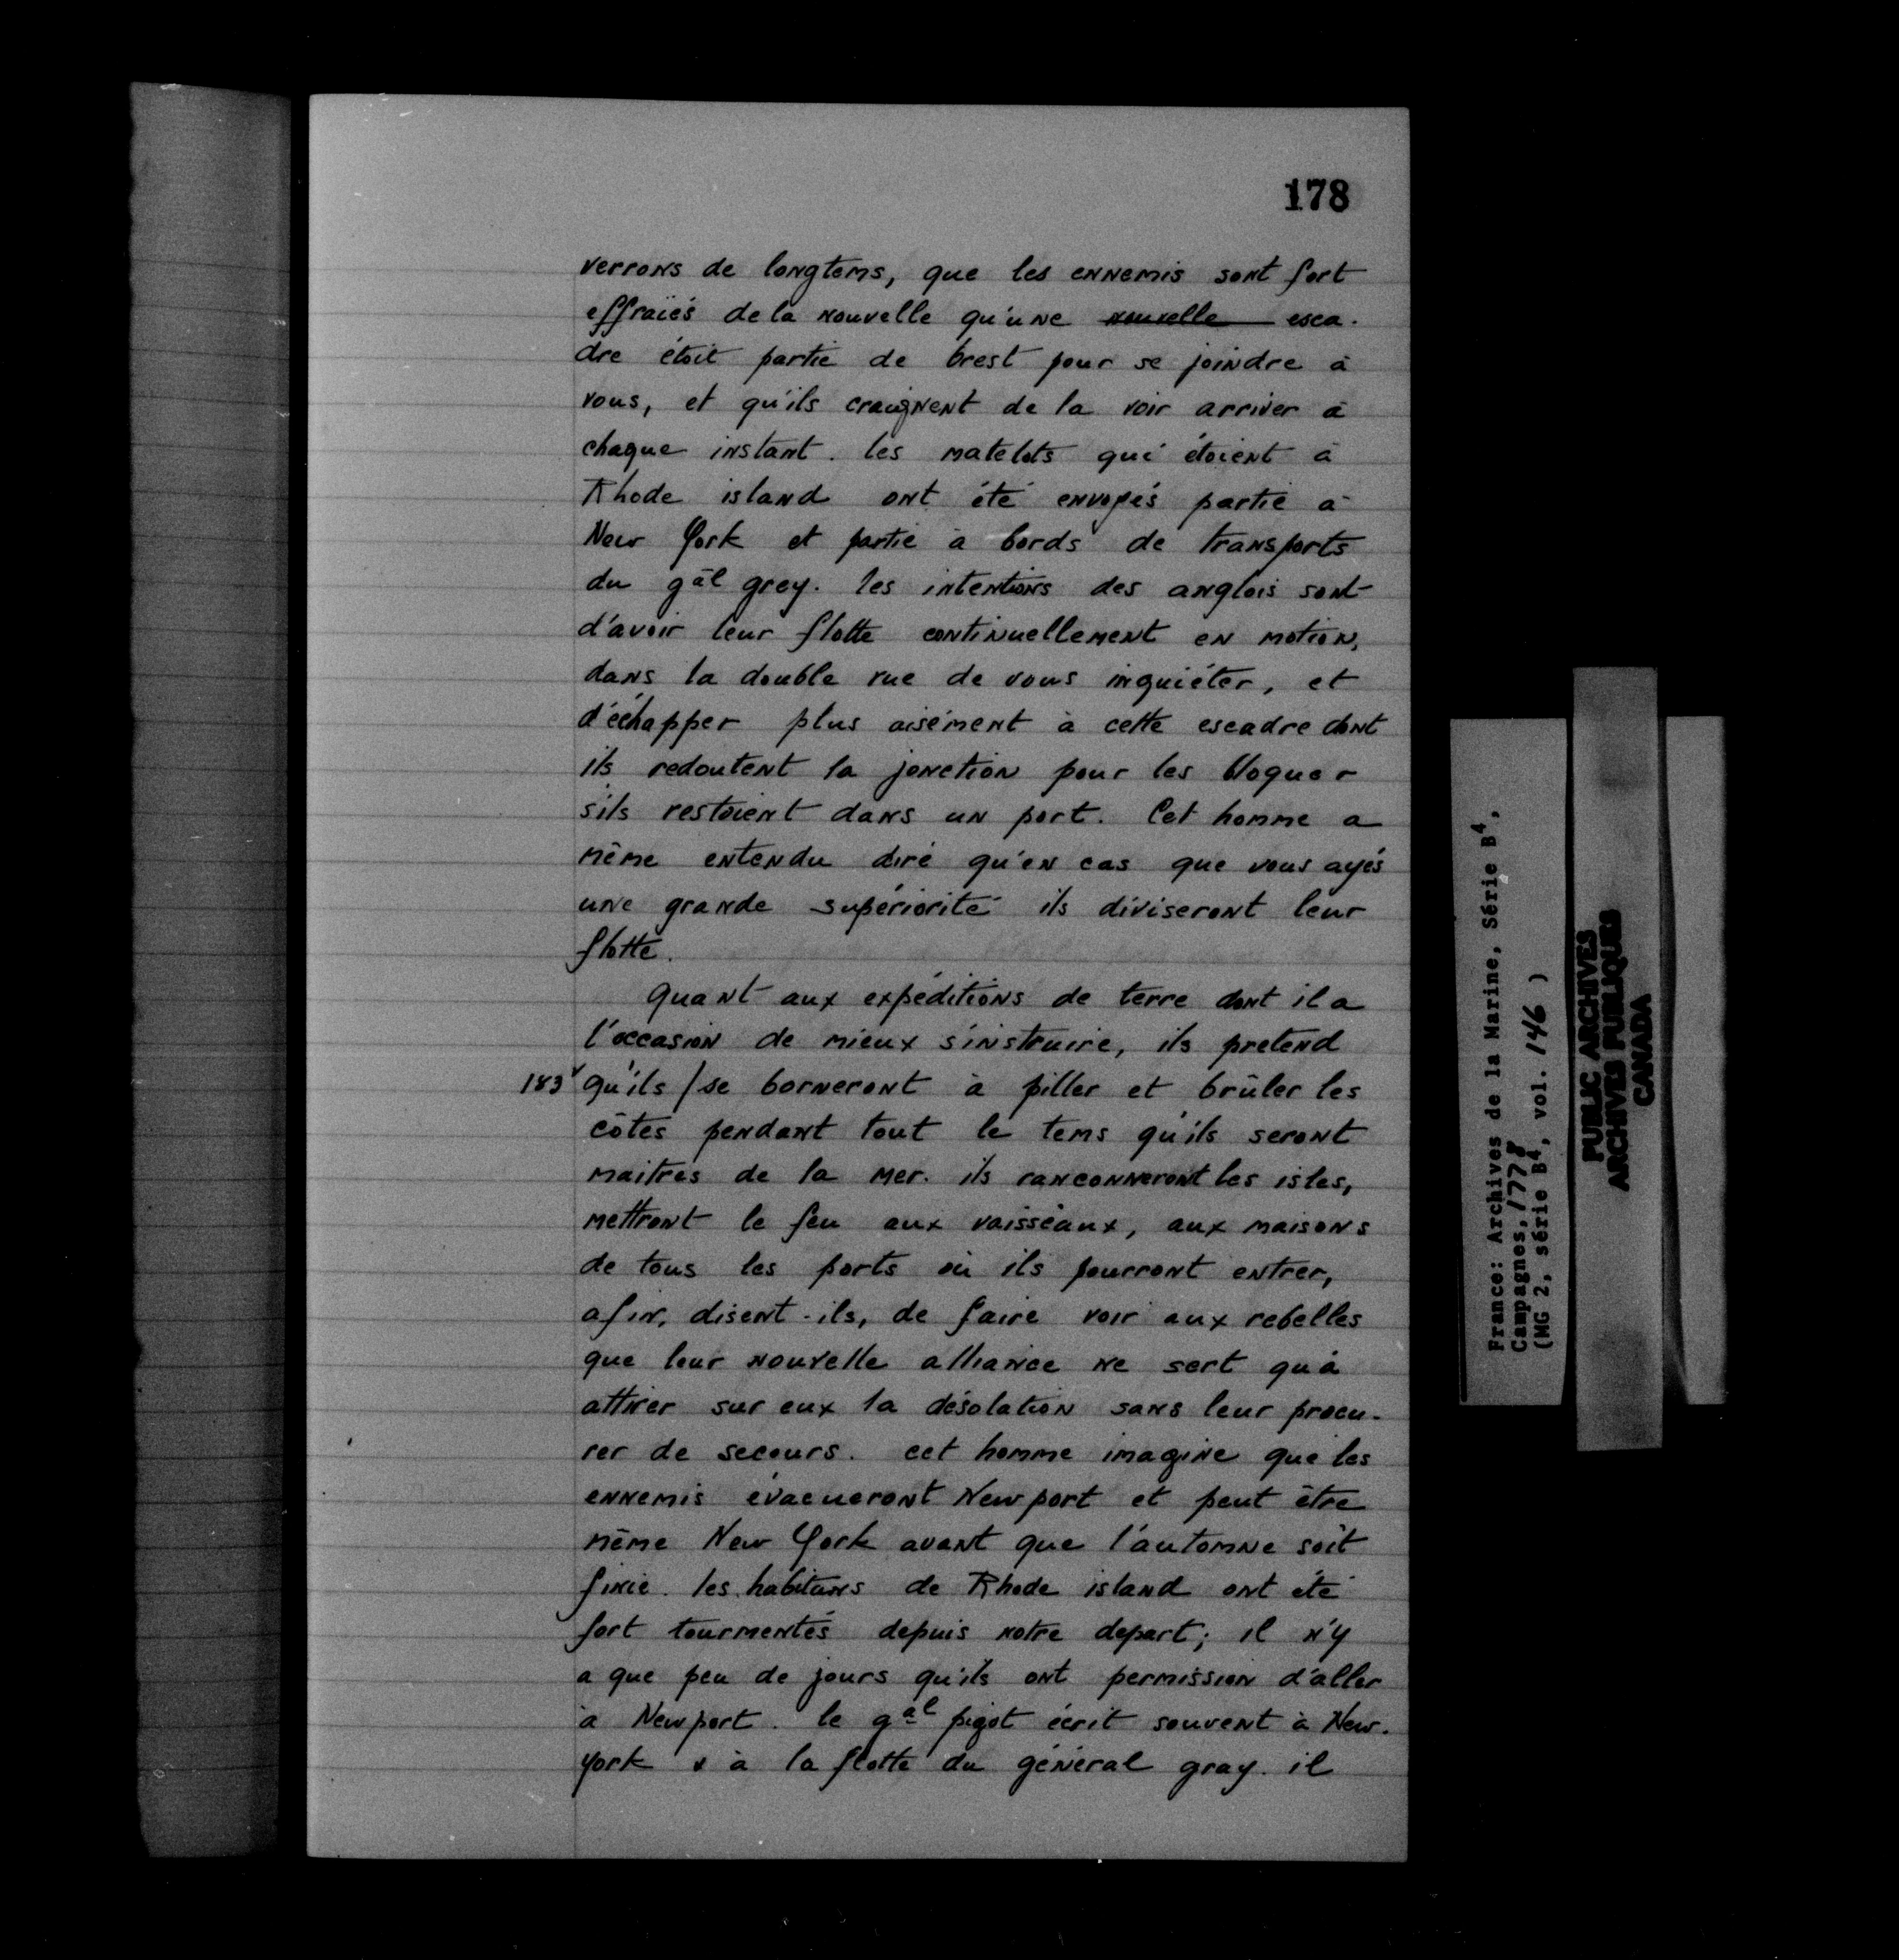 178
verrons de longtems, que les ennemis sont fort
effraiés de la nouvelle qu'une nouvelle esca-
dre étoit partie de brest pour se joindre à
vous, et qu'ils craignent de la voir arriver à
chaque instant. les matelots qui étoient à
Rhode island ont été envoyés partie à
New York et partie à bords de transports
du gāl grey. les intentions des anglois sont
d'avoir leur flotte continuellement en motion,
dans la double vue de vous inquiéter, et
d'échapper plus aisément à cette escadre dont
ils redoutent la jonction pour les bloquer
s'ils restoient dans un port. Cet homme a
même entendu dire qu'en cas que vous ayés
une grande supériorité ils diviseront leur
flotte.
Quant aux expéditions de terre dont il a
l'occasion de mieux s'instruire, ils pretend
183v qu'ils / se borneront à piller et brûler les
côtes pendant tout le tems qu'ils seront
maitres de la mer. ils ranconneront les isles,
mettront le feu aux vaisseaux, aux maisons
de tous les ports où ils pourront entrer,
afin, disent-ils, de faire voir aux rebelles
que leur nouvelle alliance ne sert qu'à
attirer sur eux la désolation sans leur procu-
rer de secours. cet homme imagine que les
ennemis évacueront Newport et peut être
même New York avant que l'automne soit
finie. les habitans de Rhode island ont été
fort tourmentés depuis notre depart; il n'y
a que peu de jours qu'ils ont permission d'aller
à Newport. le gal pigot écrit souvent à New-
york & à la flotte du général gray. il
France: Archives de la Marine, Série B4,
Campagnes, 1778
(MG 2, série B4, vol. 146 )
PUBLIC ARCHIVES
ARCHIVES PUBLIQUES
CANADA